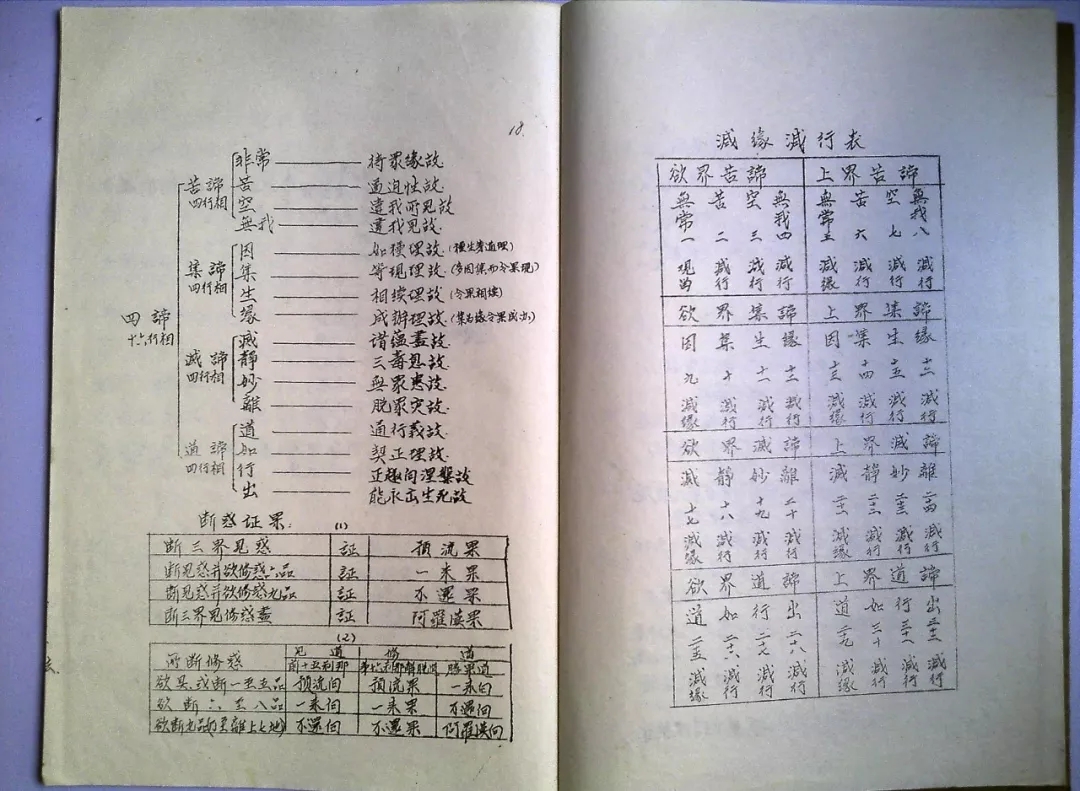 18.
四諦 十六行相
苦諦 四行相
非常 —— 待眾緣故
苦 —— 逼迫性故
空 —— 違我所見故
無我 —— 違我見故
集諦 四行相
因 —— 如種理故(種生芽道理)
集 —— 等現理故(多因集而令果現)
生 —— 相续理故(令果相续)
緣 —— 成辦理故(集为緣令果成出)
滅諦 四行相
滅 —— 諸蘊盡故
靜 —— 三毒息故
妙 —— 無眾患故
離 —— 脫眾災故
道諦 四行相
道 —— 通行義故
如 —— 契正理故
行 —— 正趣向涅槃故
出 —— 能永出生死故
断惑证果: (1)
断三界见惑 証 預流果
断见惑并欲修惑六品 証 一来果
断见惑并欲修惑九品 証 不還果
断三界见修惑盡 証 阿羅漢果
(2)
所断修惑 见道 修道
前十五刹那 第十六刹那解脱道 勝果道
欲具,或断一至五品 预流向 预流果 一来向
欲断六至八品 一来向 一来果 不還向
欲断九品(乃至離上七地) 不還向 不還果 阿羅漢向
減緣減行表
欲界苦諦 上界苦諦
無常一 苦二 空三 無我四 無常五 苦六 空七 無我八
減行 減行 減行 減緣 減行 減行 減行
欲界集諦 上界集諦
因 集 生 緣 因 集 生 緣
九 十 十一 十二 十三 十四 十五 十六
減緣 減行 減行 減行 減緣 減行 減行 減行
欲界滅諦 上界滅諦
滅 靜 妙 離 滅 靜 妙 離
十七 十八 十九 二十 二十一 二十二 二十三 二十四
減緣 減行 減行 減行 減緣 減行 減行 減行
欲界道諦 上界道諦
道 如 行 出 道 如 行 出
二十五 二十六 二十七 二十八 二十九 三十 三十一 三十二
減緣 減行 減行 減行 減緣 減行 減行 減行